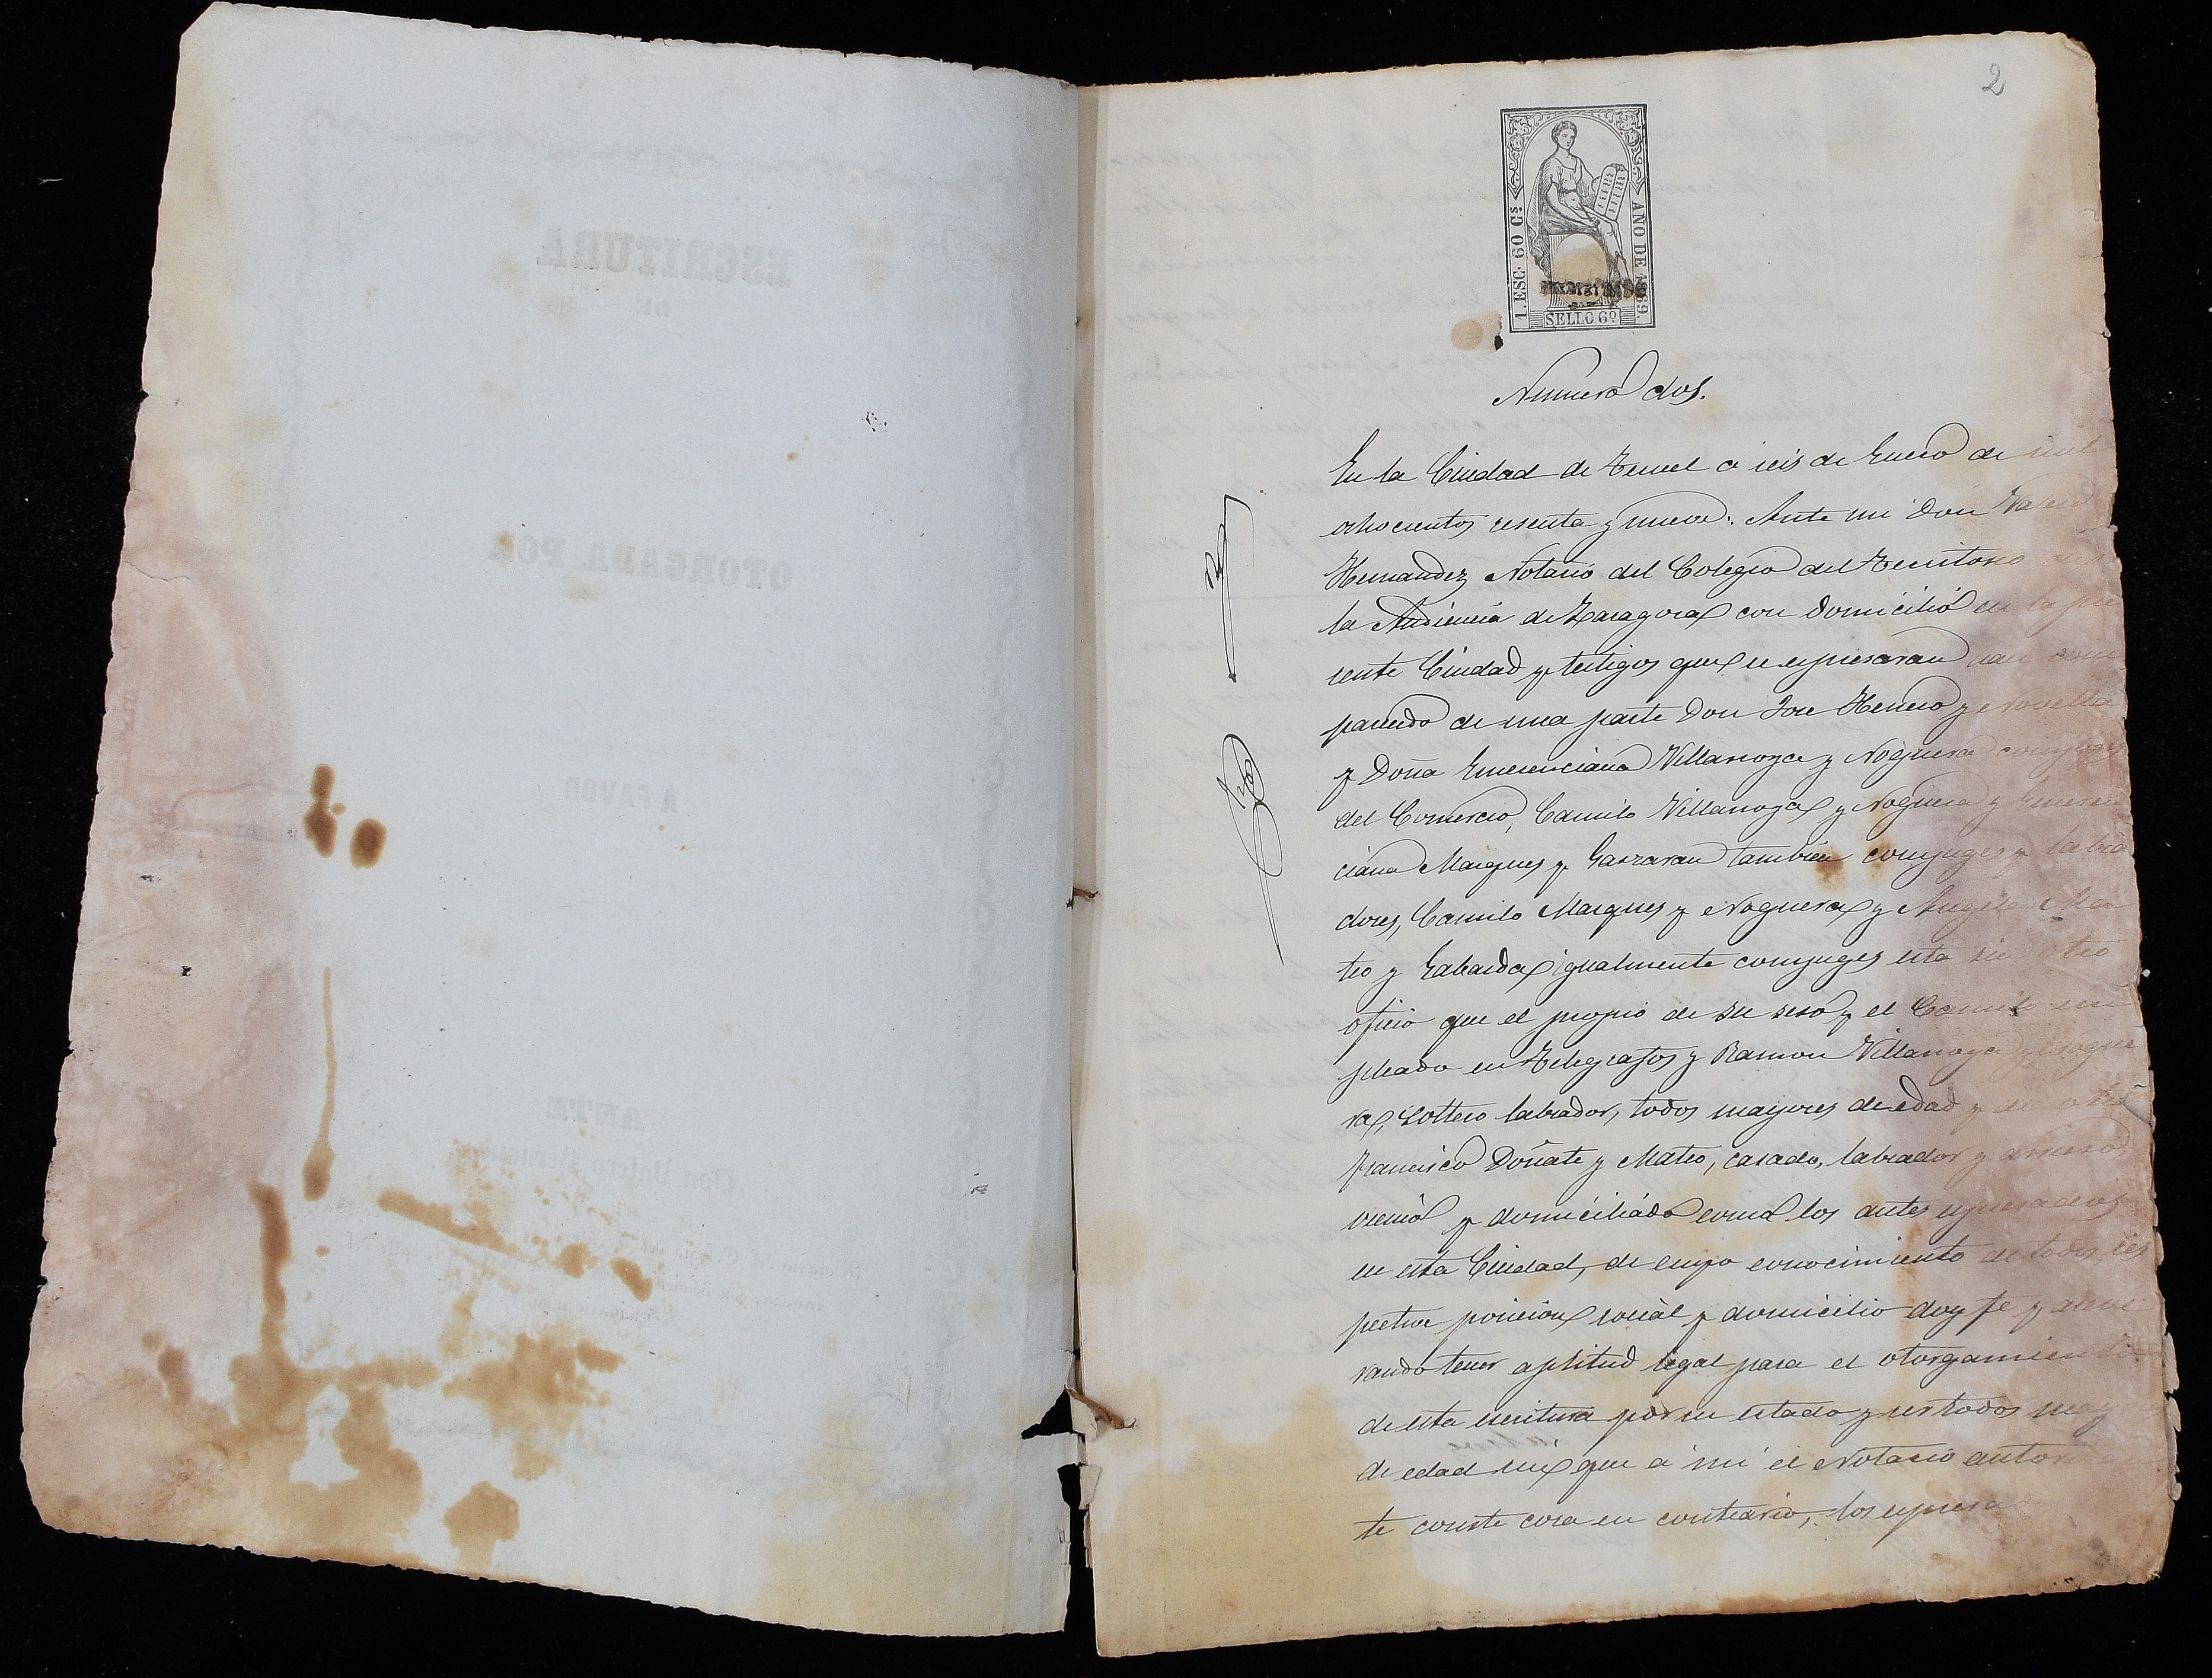 ESCRITURA
DE
OTORGADA POR
A FAVOR
ANTE
Don Valero Hernandez
2
1. ESC. 60 Cs.
AÑO DE 1869.
SELLO 6º
Numero dos.
En la Ciudad de Teruel a seis de Enero de mil
ochocientos sesenta y nueve: Ante mi Don Valero
Hernandez Notario del Colegio del Territorio de
la Audiencia de Zaragoza con domicilio en la pre
sente Ciudad y testigos que se espresaran han com
parecido de una parte Don Jose Herrero y Novella
y Doña Emerenciana Villarroya y Noguera conyuges
del Comercio, Camilo Villarroya y Noguera y Emeren
ciana Marques y Garzaran tambien conyuges y labra
dores, Camilo Marques y Noguera y Angela Ma
teo y Gabarda igualmente conyuges esta sin otro
oficio que el propio de su secso y el Camilo em
pleado en Telegrafos y Ramon Villarroya y Nogue
ra, soltero labrador, todos mayores de edad y de otra
Francisco Doñate y Mateo, casado, labrador y arriero
vecino y domiciliado como los antes espresados
en esta Ciudad, de cuyo conocimiento de todos, res
pectiva posicion social y domicilio doy fe y asegu
rando tener aptitud legal para el otorgamiento
de esta escritura por su estado y ser todos mayores
de edad sin que a mi el Notario autorizan
te conste cosa en contrario, los espresados